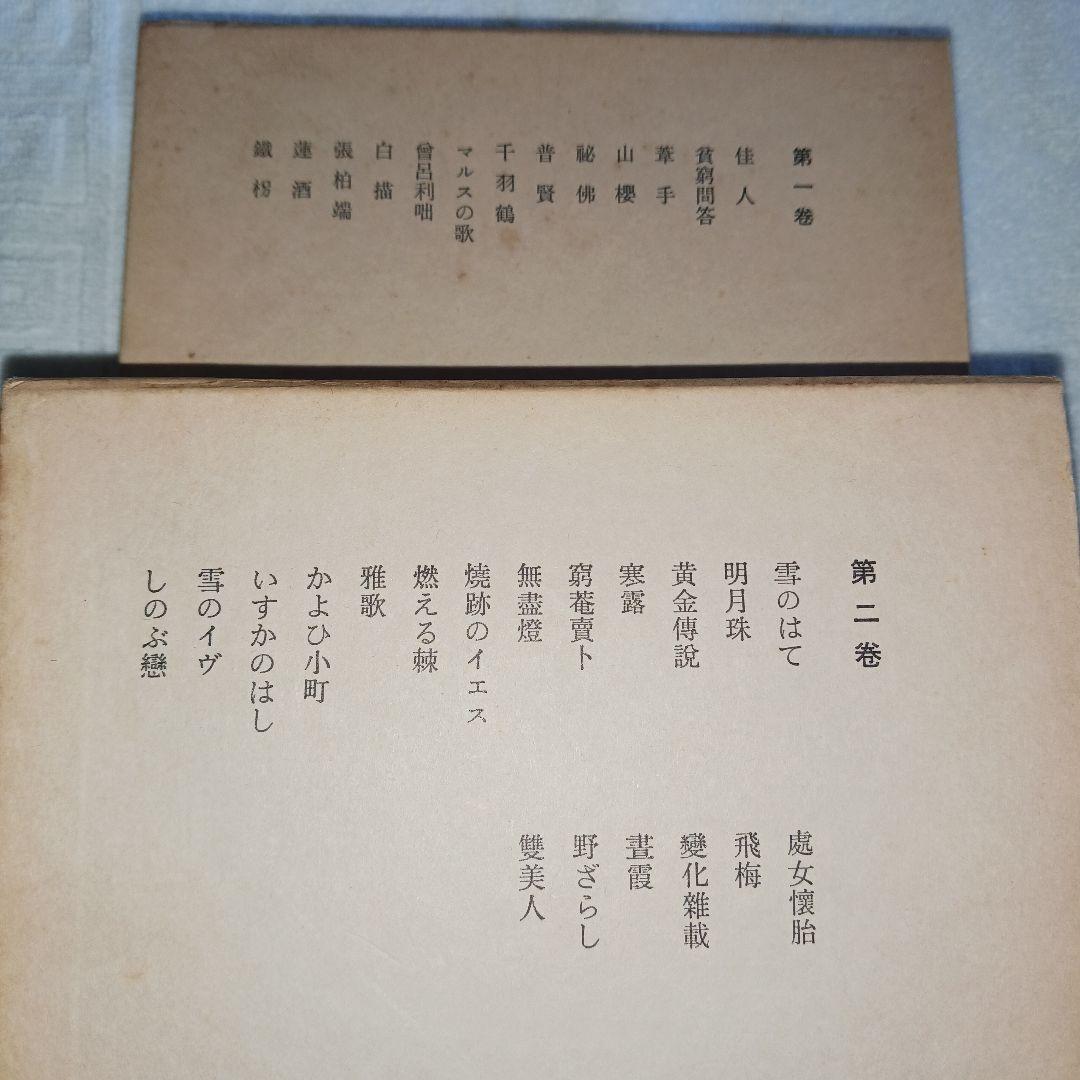 第一卷
佳人
貧窮問答
葦手
山櫻
祕佛
普賢
千羽鶴
マルスの歌
曾呂利咄
白描
張柏端
蓮酒
鐵枴
第二卷
雪のはて
明月珠
黄金傳說
寒露
窮菴賣卜
無盡燈
燒跡のイエス
燃える棘
雅歌
かよひ小町
いすかのはし
雪のイヴ
しのぶ戀
處女懷胎
飛梅
變化雜載
晝霞
野ざらし
雙美人